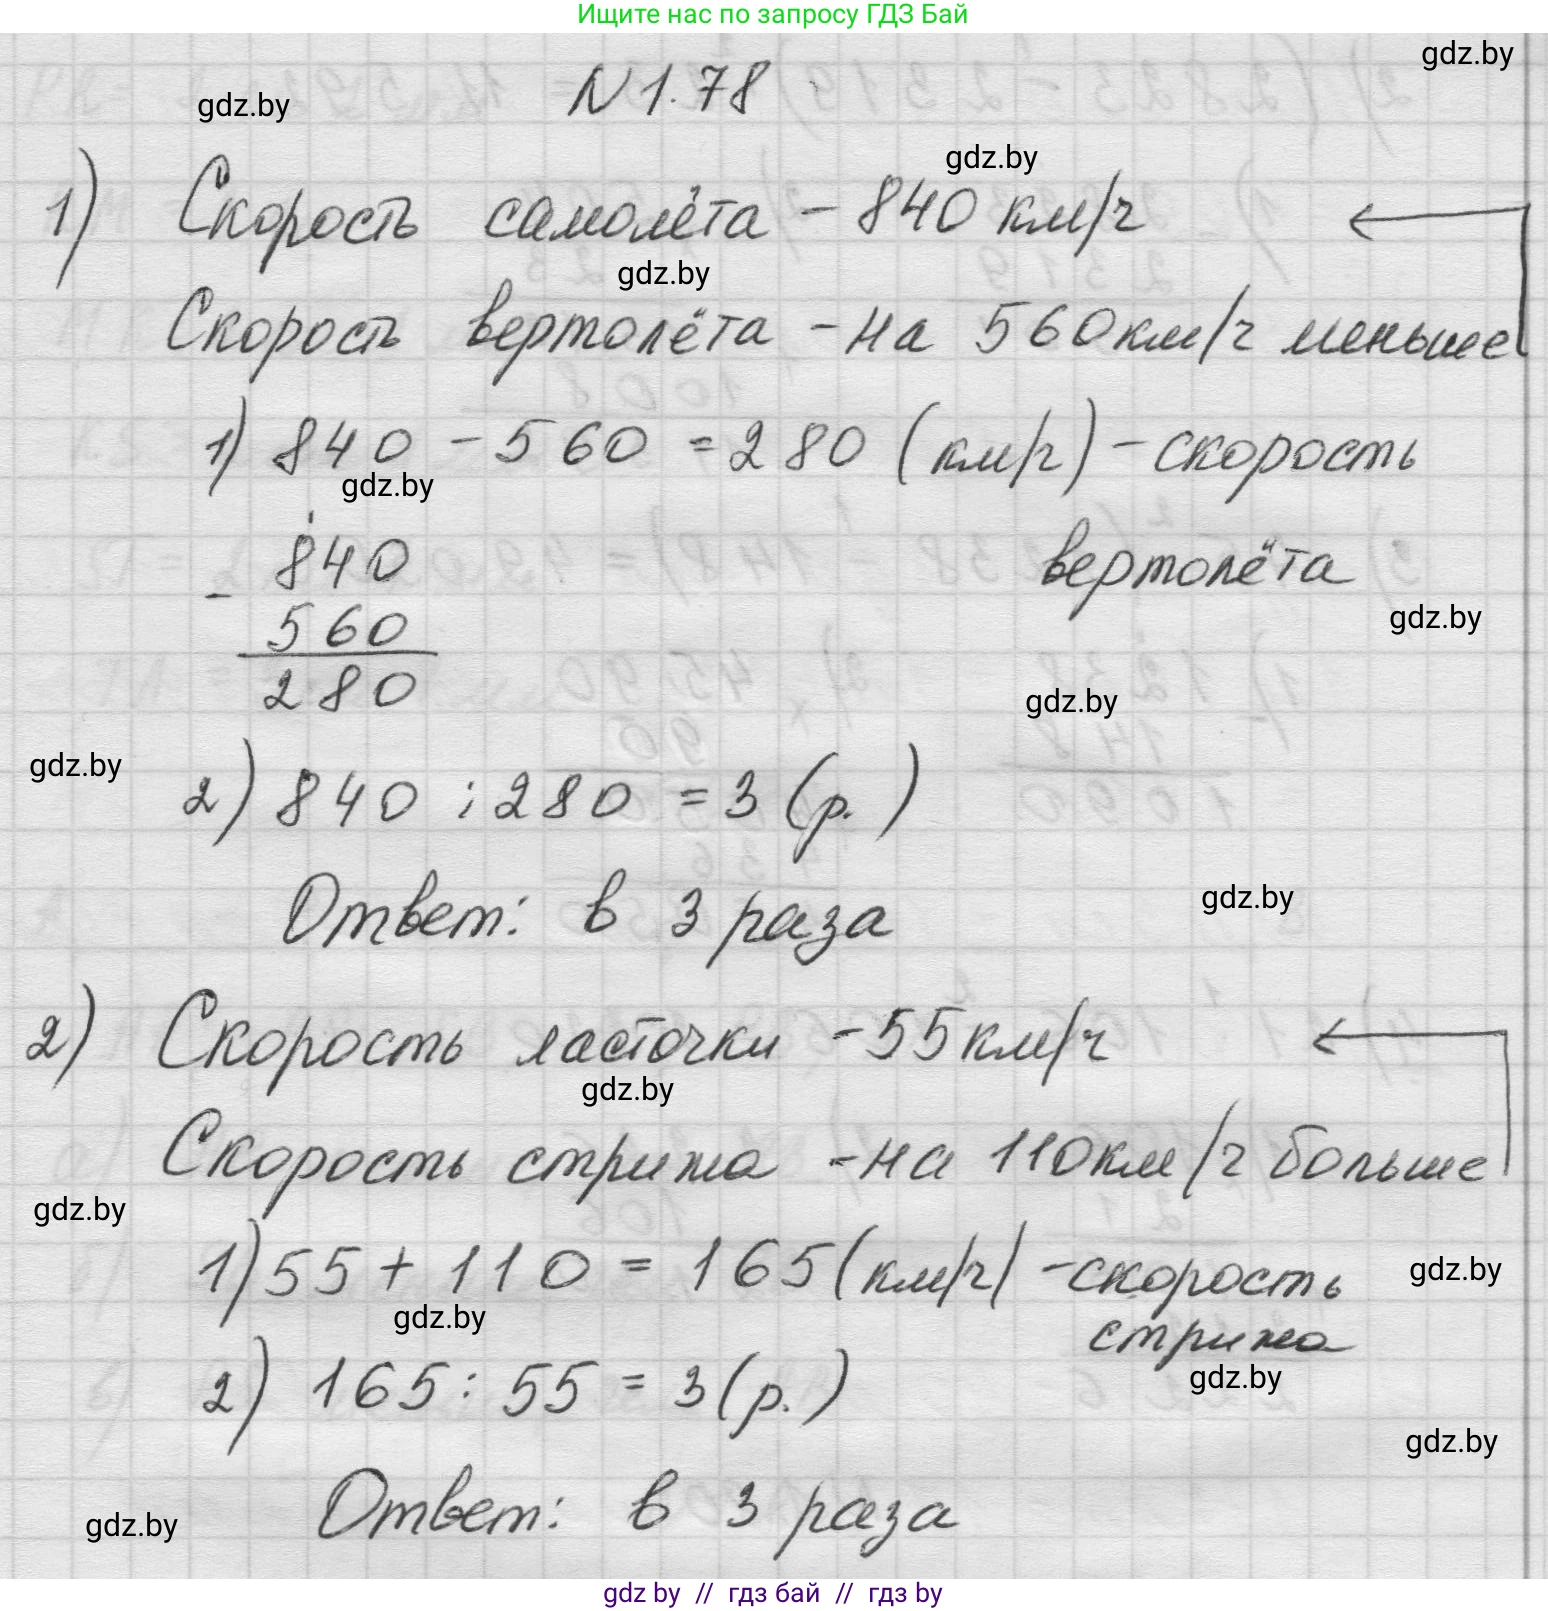 Ищите нас по запросу ГДЗ Бай
gdz.by
N 1.78
gdz.by
gdz.by
1) Скорость самолёта - 840 км/ч
gdz.by
Скорость вертолёта - на 560 км/ч меньше
1) 840 - 560 = 280 (км/ч) - скорость
gdz.by
вертолёта
840
- 560
280
gdz.by
gdz.by
gdz.by
2) 840 : 280 = 3 (р.)
Ответ: в 3 раза
gdz.by
2) Скорость ласточки - 55 км/ч
gdz.by
Скорость стрижа - на 110 км/ч больше
gdz.by
1) 55 + 110 = 165 (км/ч) - скорость
gdz.by
gdz.by
стрижа
gdz.by
2) 165 : 55 = 3 (р.)
gdz.by
Ответ: в 3 раза
gdz.by
gdz by // гдз бай // гдз by